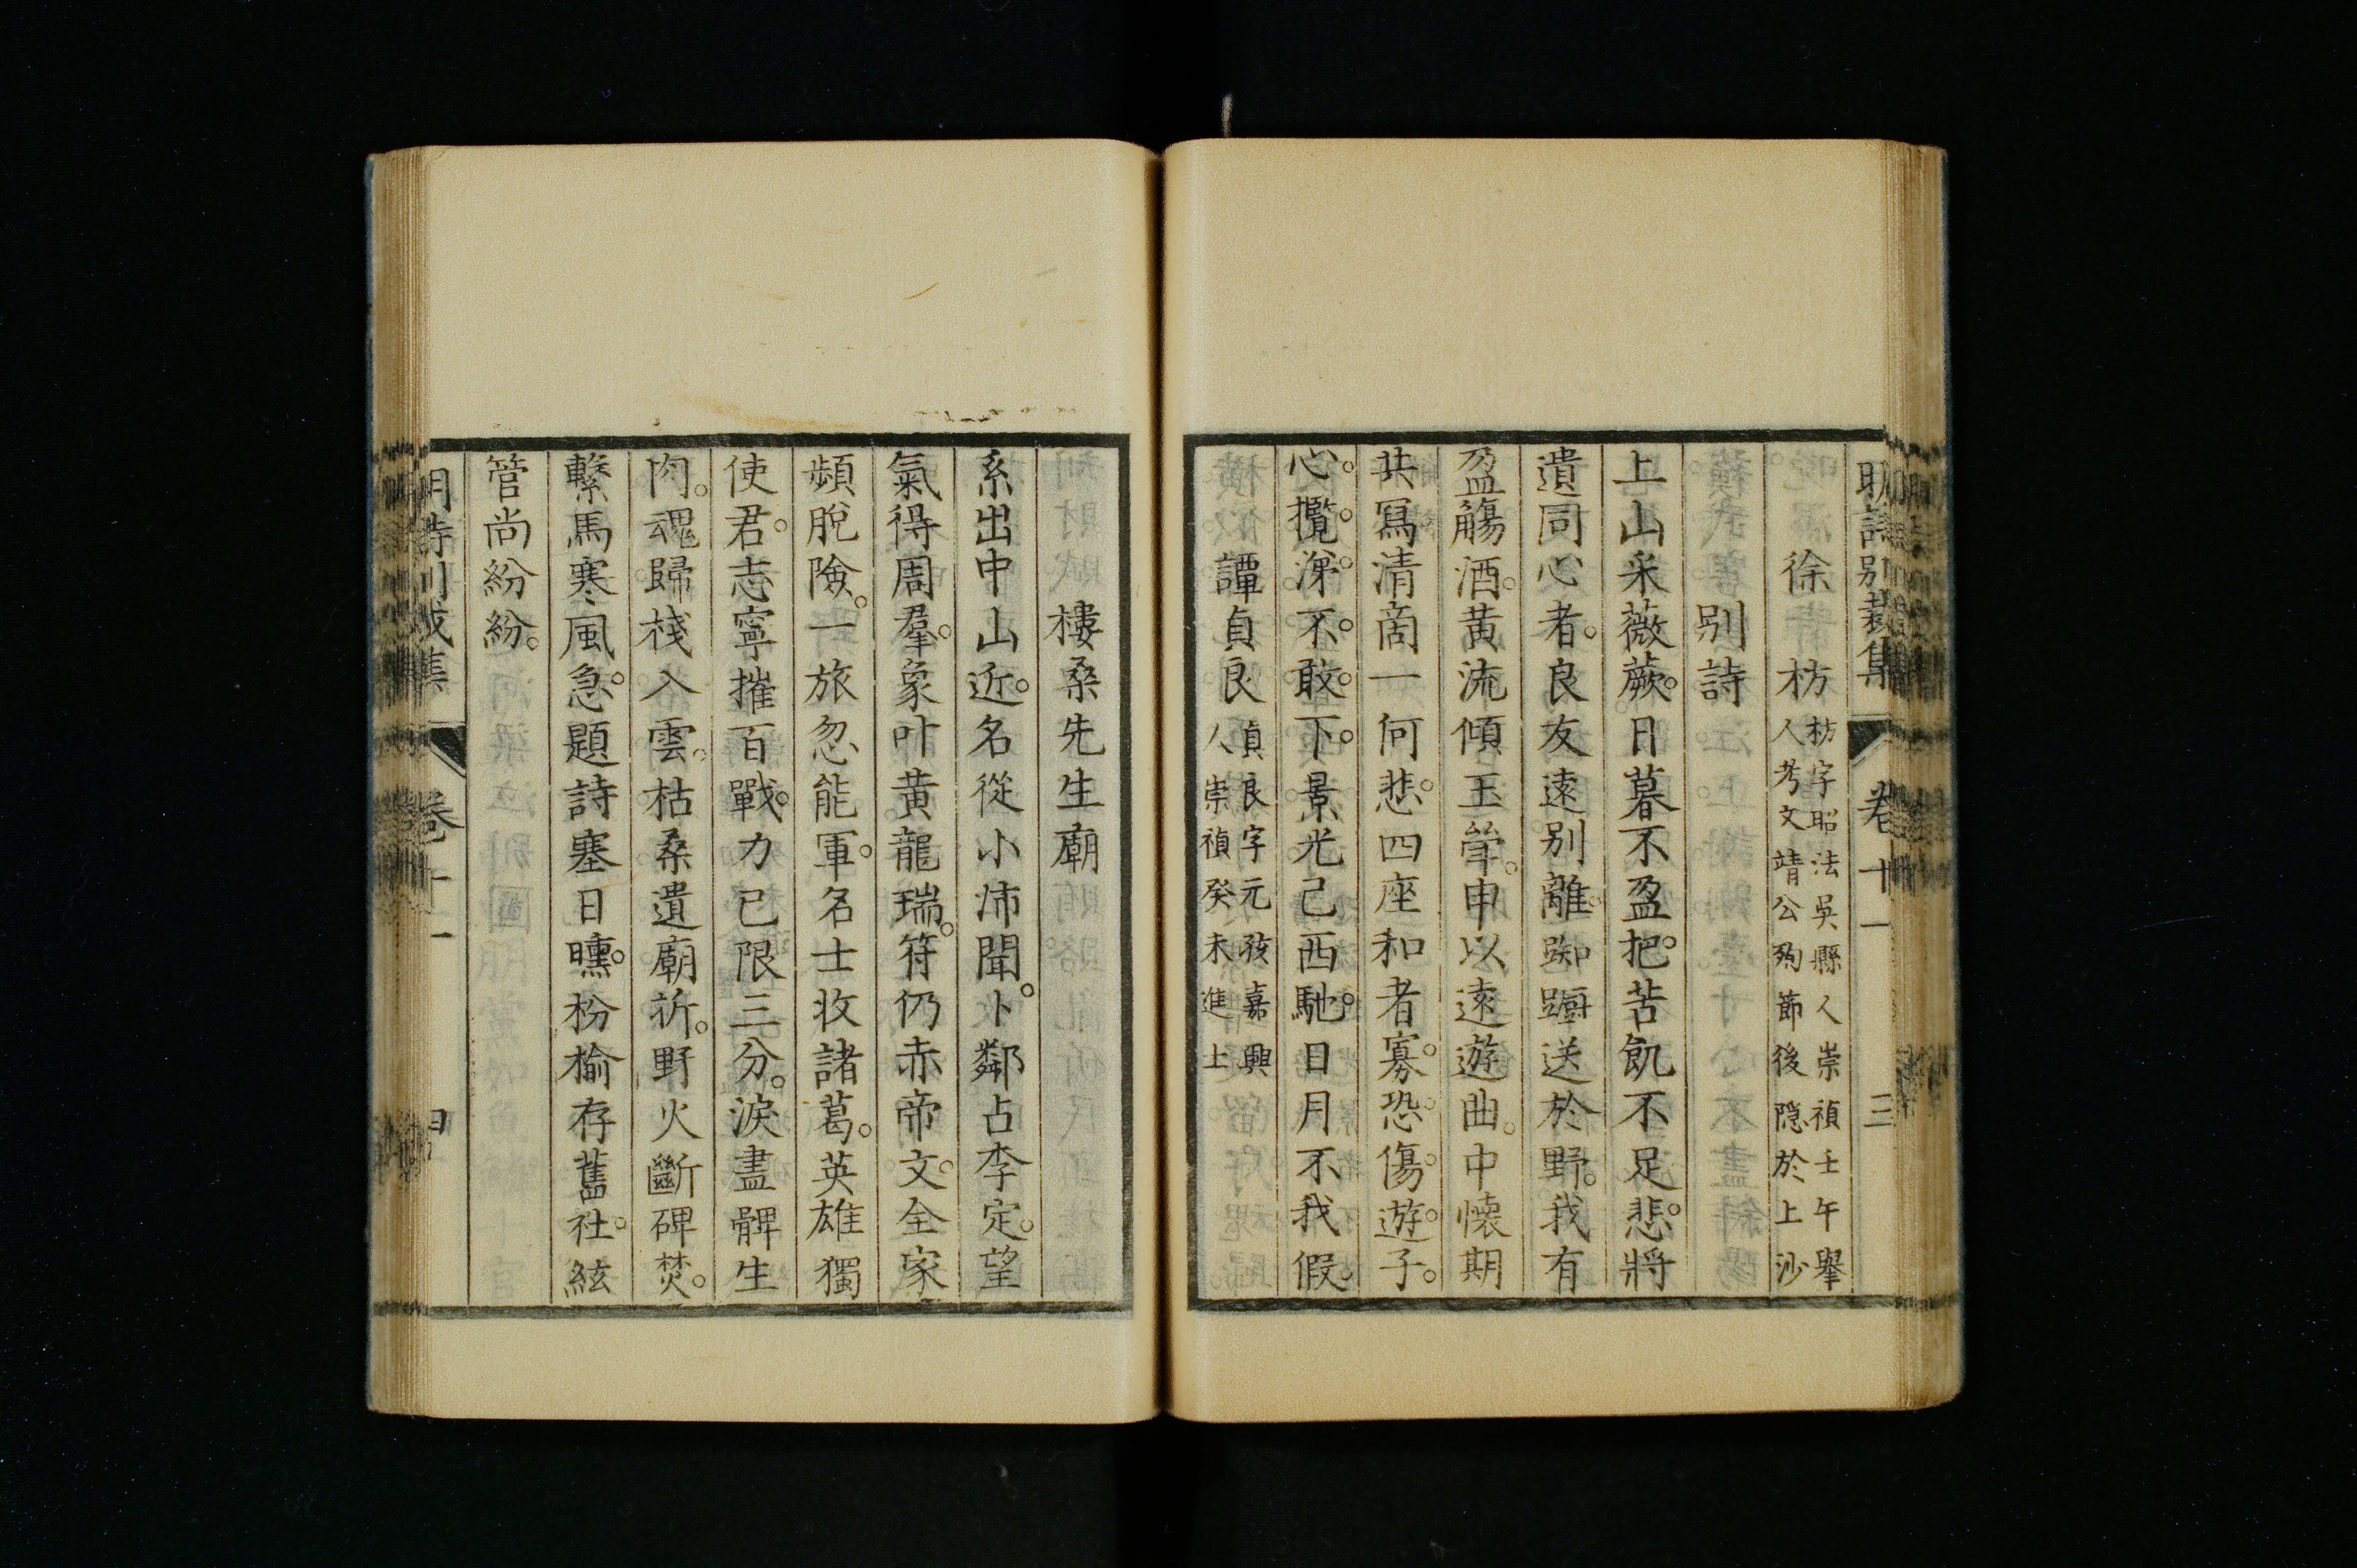 明詩別裁集 卷十一 三
徐 枋 枋字昭法吳縣人崇禎壬午舉
人考文靖公殉節後隱於上沙
別詩
上山采薇蕨。日暮不盈把。苦飢不足悲。將
遺同心者。良友遠別離。踟躕送於野。我有
盈觴酒。黄流傾玉斝。申以遠遊曲。中懷期
共寫。清商一何悲。四座和者寡。恐傷遊子
心。攬涕不敢下。景光已西馳。日月不我假。
譚貞良 貞良字元孩嘉興
人崇禎癸未進士
樓桑先生廟
系出中山近。名從小沛聞。卜鄰占李定。望
氣得周羣。象叶黄龍瑞。符仍赤帝文。全家
頻脫險。一旅忽能軍。名士收諸葛。英雄獨
使君。志寧摧百戰。力已限三分。淚盡髀生
肉。魂歸棧入雲。枯桑遺廟祈。野火斷碑焚。
繫馬寒風急。題詩塞日曛。枌榆存舊社。絃
管尚紛紛。
卷十一